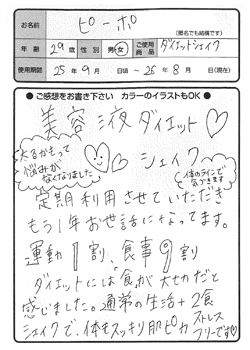 お名前 ピーポ (匿名でも結構です)
年齢 29歳 性別 男・女 ご使用商品 ダイエットシェイク
使用期間 25年9月 日頃 ~ 26年8月 (現在)
● ご感想をお書き下さい カラーのイラストもOK ●
美容液ダイエット
シェイク
太るかもって
悩みが
なくなりました
体のラインで
気づきます
定期利用させていただき
もう1年お世話になってます。
運動1割、食事9割
ダイエットには「食」が大せつだと
感じました。通常の生活+2食
シェイクで、体もスッキリ肌ピカ
ストレス
フリーです